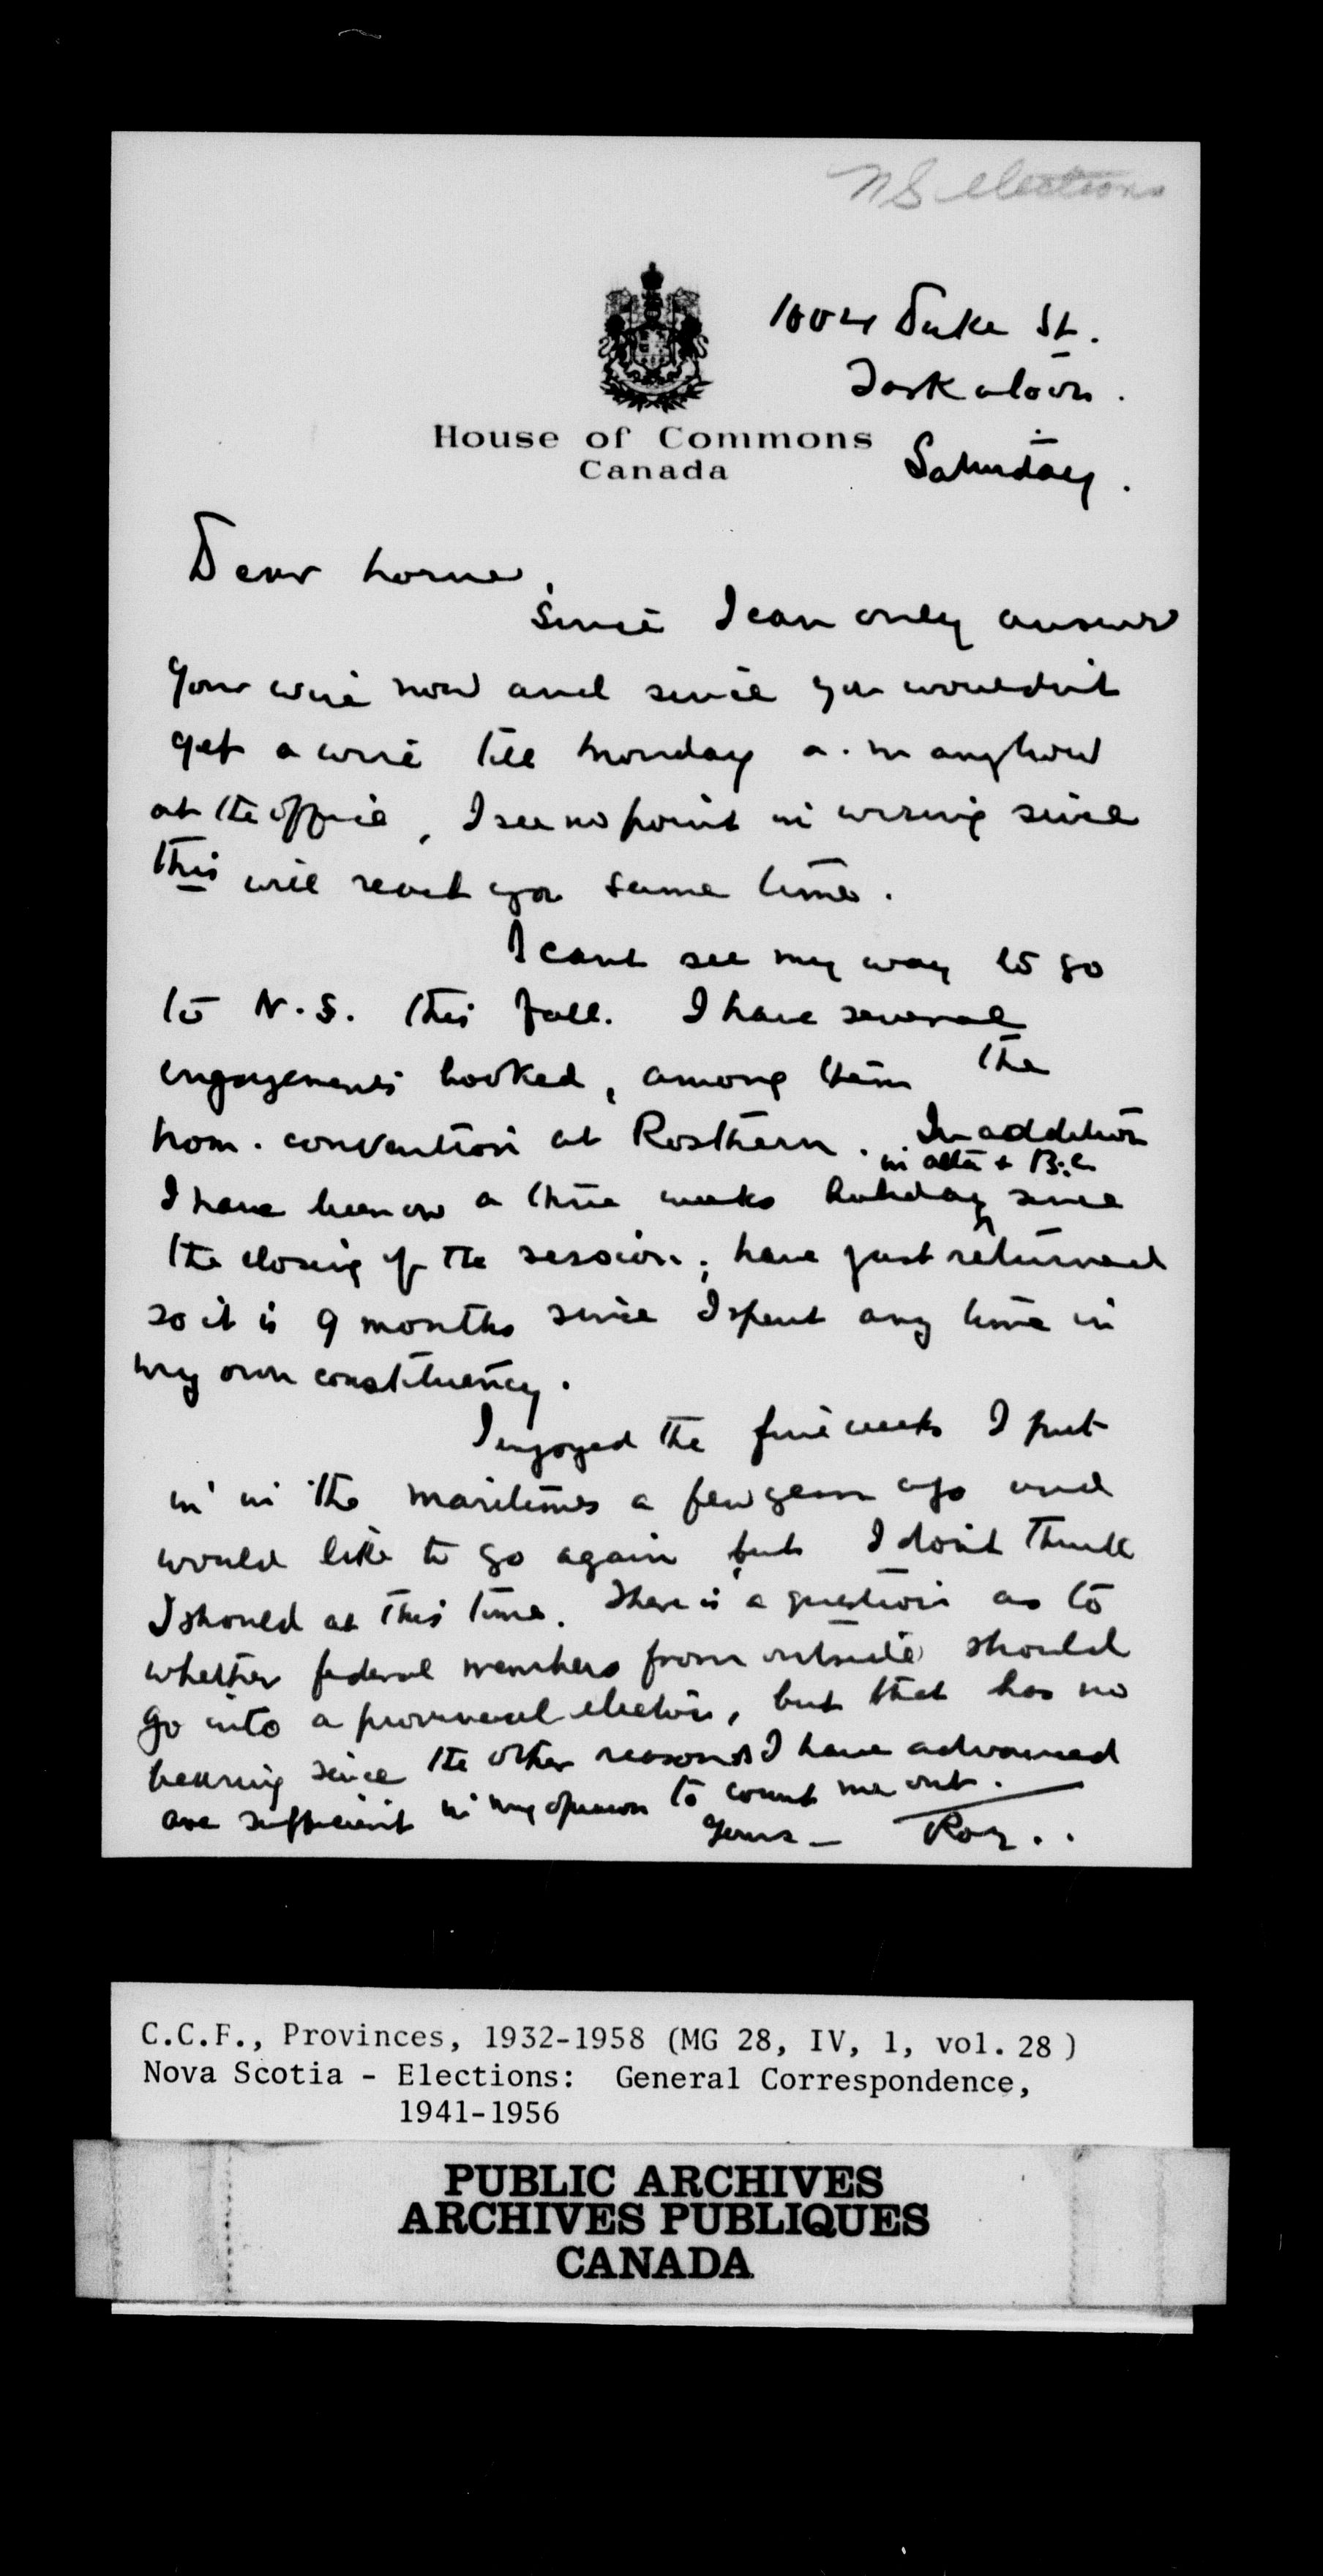 NS elections
1004 Duke St.
Saskatoon.
House of Commons
Canada
Saturday.
Dear Lorne,
Since I can only answer
your wire now and since you wouldn't
get a wire till Monday a.m anyhow
at the office, I see no point in wiring since
this will reach you same time.
I cant see my way to go
to N.S. this fall. I have several
engagements booked, among them the
nom. convention at Rosthern. In addition
in Alta + B.C.
I have been on a three weeks holiday since
the closing of the session; have just returned
so it is 9 months since I spent any time in
my own constituency.
I enjoyed the five weeks I put
in in the Maritimes a few years ago and
would like to go again but I don't think
I should at this time. There is a question as to
whether federal members from outside should
go into a provincial election, but that has no
bearing since the other reasons I have advanced
are sufficient in my opinion to count me out.
Yours - Roy..
C.C.F., Provinces, 1932-1958 (MG 28, IV, 1, vol. 28)
Nova Scotia - Elections: General Correspondence,
1941-1956
PUBLIC ARCHIVES
ARCHIVES PUBLIQUES
CANADA